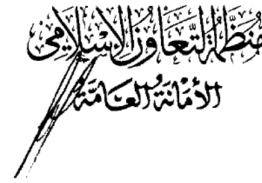 منظمة التعاون الإسلامي
الأمانة العامة